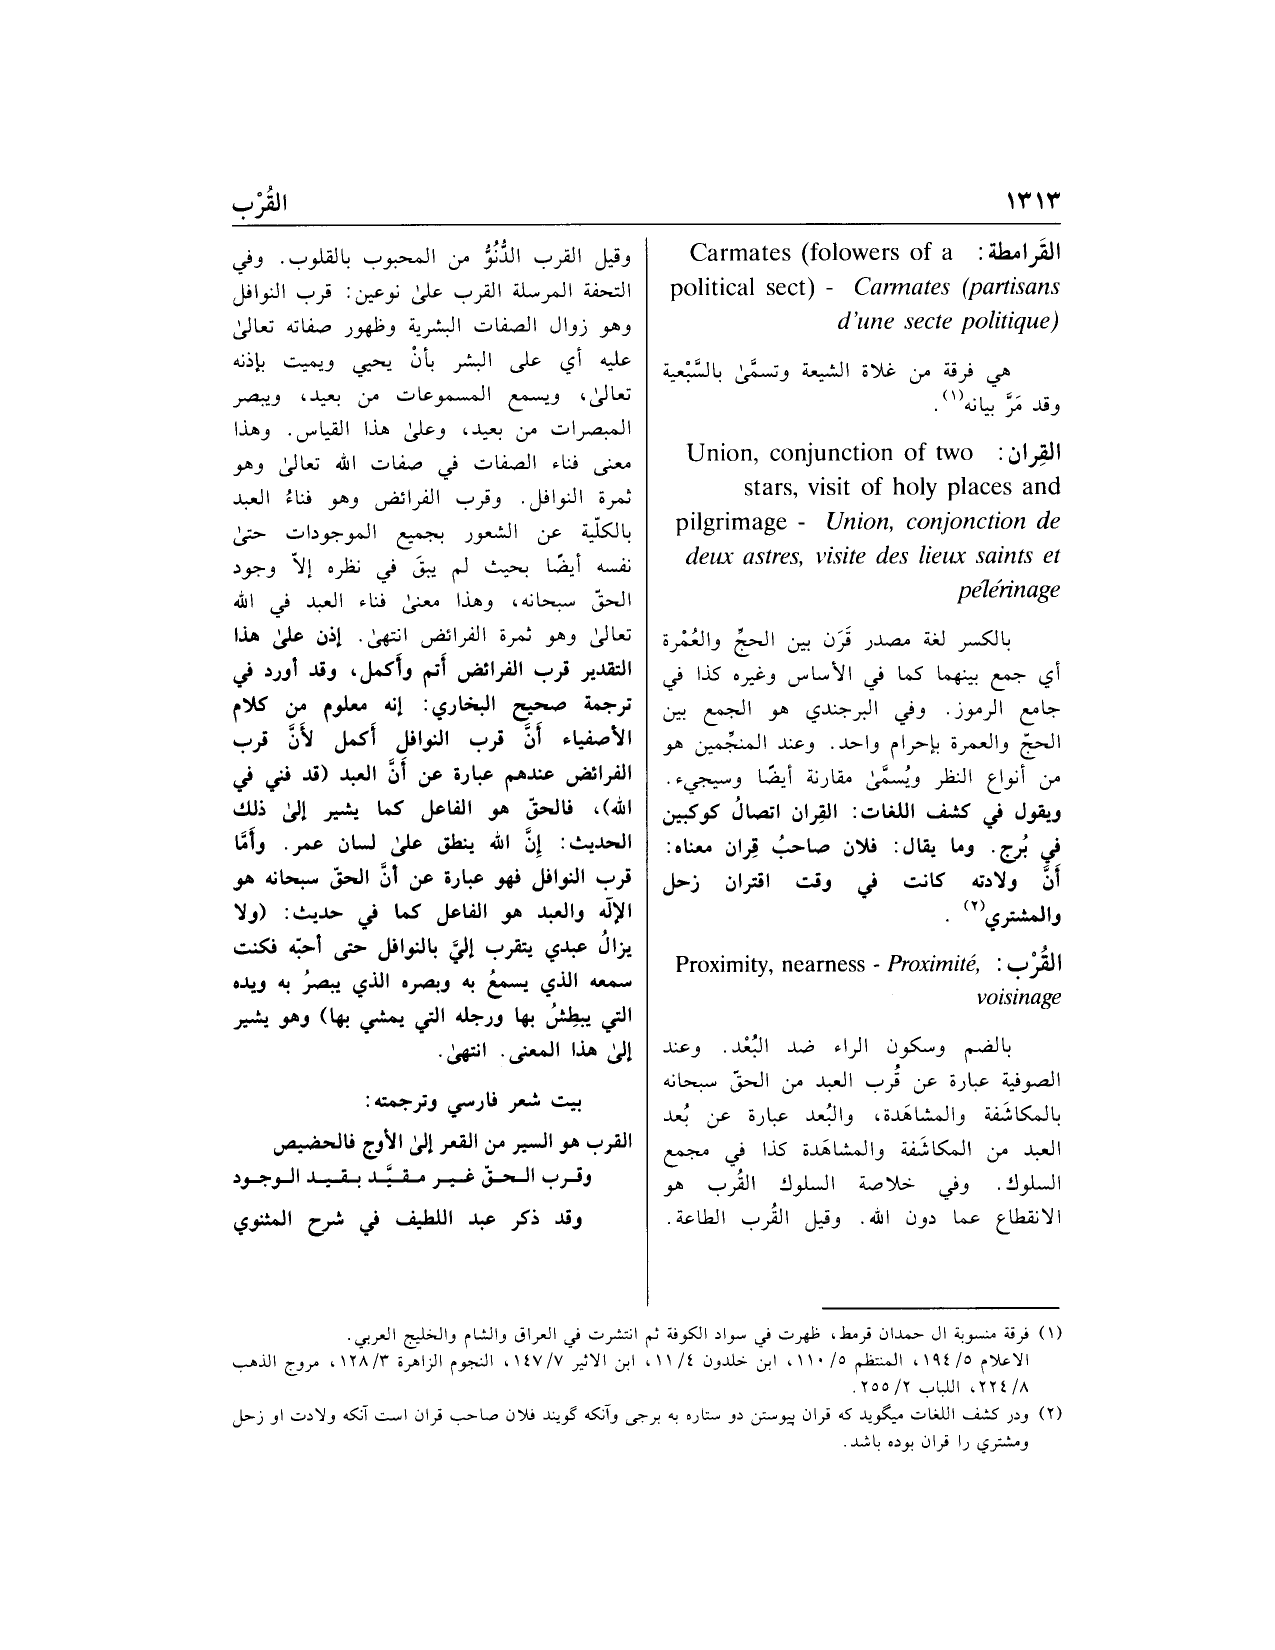 ١٣١٣
القُرْب
القَرامطة: Carmates (folowers of a
political sect) - Carmates (partisans
d'une secte politique)
هي فرقة من غلاة الشيعة وتسمَّىٰ بالسَّبْعية
وقد مَرَّ بيانه(١).
القِران: Union, conjunction of two
stars, visit of holy places and
pilgrimage - Union, conjonction de
deux astres, visite des lieux saints et
pélérinage
بالكسر لغة مصدر قَرَن بين الحجِّ والعُمْرة
أي جمع بينهما كما في الأساس وغيره كذا في
جامع الرموز. وفي البرجندي هو الجمع بين
الحجّ والعمرة بإحرام واحد. وعند المنجِّمين هو
من أنواع النظر ويُسمَّىٰ مقارنة أيضًا وسيجيء.
ويقول في كشف اللغات: القِران اتصالُ كوكبين
في بُرج. وما يقال: فلان صاحبُ قِران معناه:
أنَّ ولادته كانت في وقت اقتران زحل
والمشتري(٢) .
القُرْب: Proximity, nearness - Proximité,
voisinage
بالضم وسكون الراء ضد البُعْد. وعند
الصوفية عبارة عن قُرب العبد من الحقّ سبحانه
بالمكاشَفة والمشاهَدة، والبُعد عبارة عن بُعد
العبد من المكاشَفة والمشاهَدة كذا في مجمع
السلوك. وفي خلاصة السلوك القُرب هو
الانقطاع عما دون الله. وقيل القُرب الطاعة.
وقيل القرب الدُّنُوُّ من المحبوب بالقلوب. وفي
التحفة المرسلة القرب علىٰ نوعين: قرب النوافل
وهو زوال الصفات البشرية وظهور صفاته تعالىٰ
عليه أي على البشر بأنْ يحيي ويميت بإذنه
تعالىٰ، ويسمع المسموعات من بعيد، ويبصر
المبصرات من بعيد، وعلىٰ هذا القياس. وهذا
معنى فناء الصفات في صفات الله تعالىٰ وهو
ثمرة النوافل. وقرب الفرائض وهو فناءُ العبد
بالكلّية عن الشعور بجميع الموجودات حتىٰ
نفسه أيضًا بحيث لم يبقَ في نظره إلاّ وجود
الحقّ سبحانه، وهذا معنىٰ فناء العبد في الله
تعالىٰ وهو ثمرة الفرائض انتهىٰ. إذن علىٰ هذا
التقدير قرب الفرائض أتم وأكمل، وقد أورد في
ترجمة صحيح البخاري: إنه معلوم من كلام
الأصفياء أنَّ قرب النوافل أكمل لأنَّ قرب
الفرائض عندهم عبارة عن أنَّ العبد (قد فني في
الله)، فالحقّ هو الفاعل كما يشير إلىٰ ذلك
الحديث: إنَّ الله ينطق علىٰ لسان عمر. وأمَّا
قرب النوافل فهو عبارة عن أنَّ الحقّ سبحانه هو
الإلّه والعبد هو الفاعل كما في حديث: (ولا
يزالُ عبدي يتقرب إليَّ بالنوافل حتى أحبّه فكنت
سمعه الذي يسمعُ به وبصره الذي يبصرُ به ويده
التي يبطِشُ بها ورجله التي يمشي بها) وهو يشير
إلىٰ هذا المعنى. انتهىٰ.
بيت شعر فارسي وترجمته:
القرب هو السير من القعر إلىٰ الأوج فالحضيض
وقـرب الـحـقّ غـيـر مـقـيَّـد بـقـيـد الـوجـود
وقد ذكر عبد اللطيف في شرح المثنوي
(١) فرقة منسوبة ال حمدان قرمط، ظهرت في سواد الكوفة ثم انتشرت في العراق والشام والخليج العربي.
الاعلام ٥/ ١٩٤، المنتظم ٥/ ١١٠، ابن خلدون ٤/ ١١، ابن الاثير ٧/ ١٤٧، النجوم الزاهرة ٣/ ١٢٨، مروج الذهب
٨/ ٢٢٤، اللباب ٢/ ٢٥٥.
(٢) ودر كشف اللغات ميگويد كه قران پيوستن دو ستاره به برجى وآنكه گويند فلان صاحب قران است آنكه ولادت او زحل
ومشتري را قران بوده باشد.